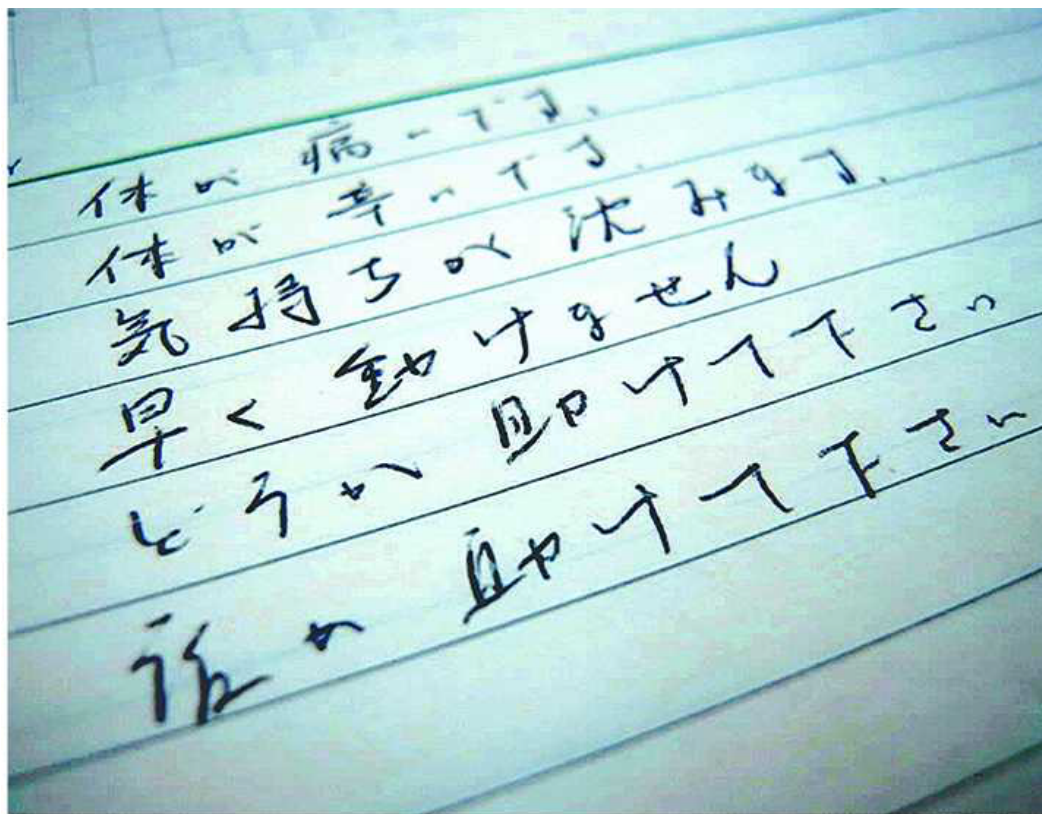 体が痛いです、
体が辛いです、
気持ちが沈みます、
早く動けません
どうか助けて下さい
誰か助けて下さい